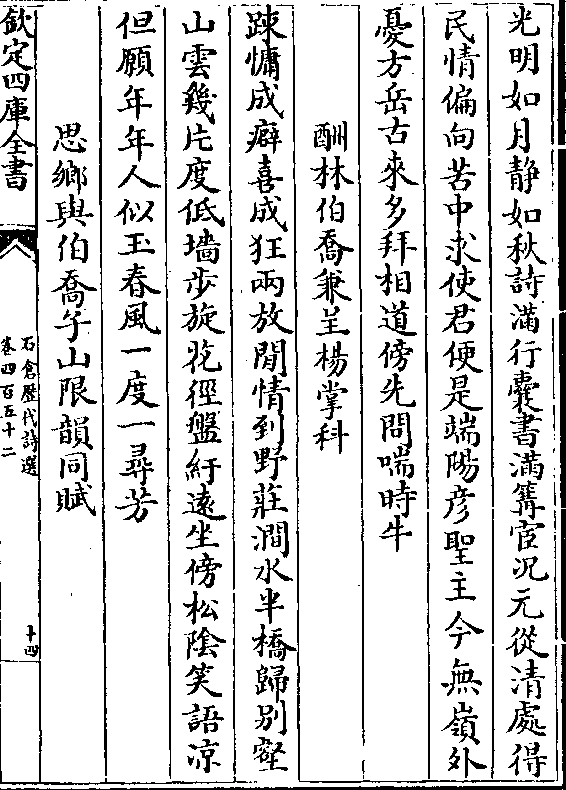 光明如月静如秋詩滿行囊書滿篝宦况元從清處得
民情偏向苦中求使君便是端陽彦聖主今無嶺外
憂方岳古來多拜相道傍先問喘時牛
酬林伯喬兼呈楊掌科
踈慵成癖喜成狂兩放閒情到野莊澗水半橋歸别壑
山雲幾片度低墻步旋花徑盤紆遠坐傍松陰笑語凉
但願年年人似玉春風一度一尋芳
思鄉與伯喬午山限韻同賦
欽定四庫全書
石倉歷代詩選
卷四百五十二
十四